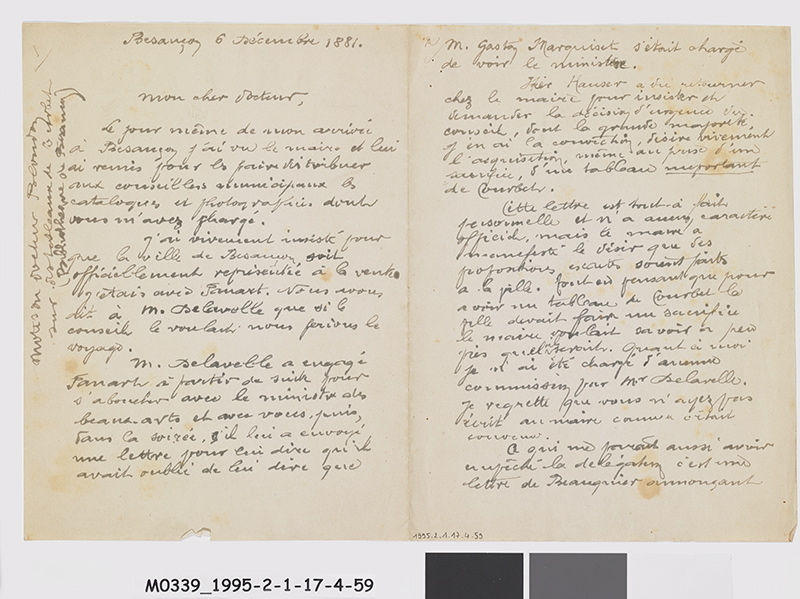 Besançon 6 Décembre 1881.
Mon cher Docteur,
Le jour même de mon arrivée
à Besançon j'ai vu le maire et lui
ai remis pour les faire distribuer
aux conseillers municipaux les
catalogues et photographies dont
vous m'avez chargé.
J'ai vivement insisté pour
que la ville de Besançon, soit
officiellement représentée à la vente
j'étais avec Fanart. Nous avons
dit à M. Delavelle que si le
conseil le voulait nous ferions le
voyage.
M. Delavelle a engagé
Fanart à partir de suite pour
s'aboucher avec le ministre des
beaux-arts et avec vous, puis,
dans la soirée, il lui a envoyé
une lettre pour lui dire qu'il
avait oublié de lui dire que
Notes du docteur Blondon
sur des tableaux de Courbet
(Bibliothèque de Besançon)
M. Gaston Marquiset s'était chargé
de voir le ministre.
Hier Hauser a dû retourner
chez le maire pour insister et
demander la décision d'urgence du
conseil, dont la grande majorité
j'en ai la conviction, désire vivement
l'acquisition, même au prix d'un
sacrifice, d'un tableau important
de Courbet.
Cette lettre est tout-à-fait
personnelle et n'a aucun caractère
officiel, mais le maire a
manifesté le désir que des
propositions écrites soient faites
à la ville. Tout en pensant que pour
avoir un tableau de Courbet la
ville devait faire un sacrifice
le maire voulait savoir à peu
près quel il serait. Quant à moi
je n'ai été chargé d'aucune
commission par Mr Delavelle.
Je regrette que vous n'ayez pas
écrit au maire comme c'était
convenu.
Ce qui me paraît aussi avoir
empêché la délégation c'est une
lettre de Beauquier annonçant
1995.2.1.17.4.59
M0339_1995-2-1-17-4-59